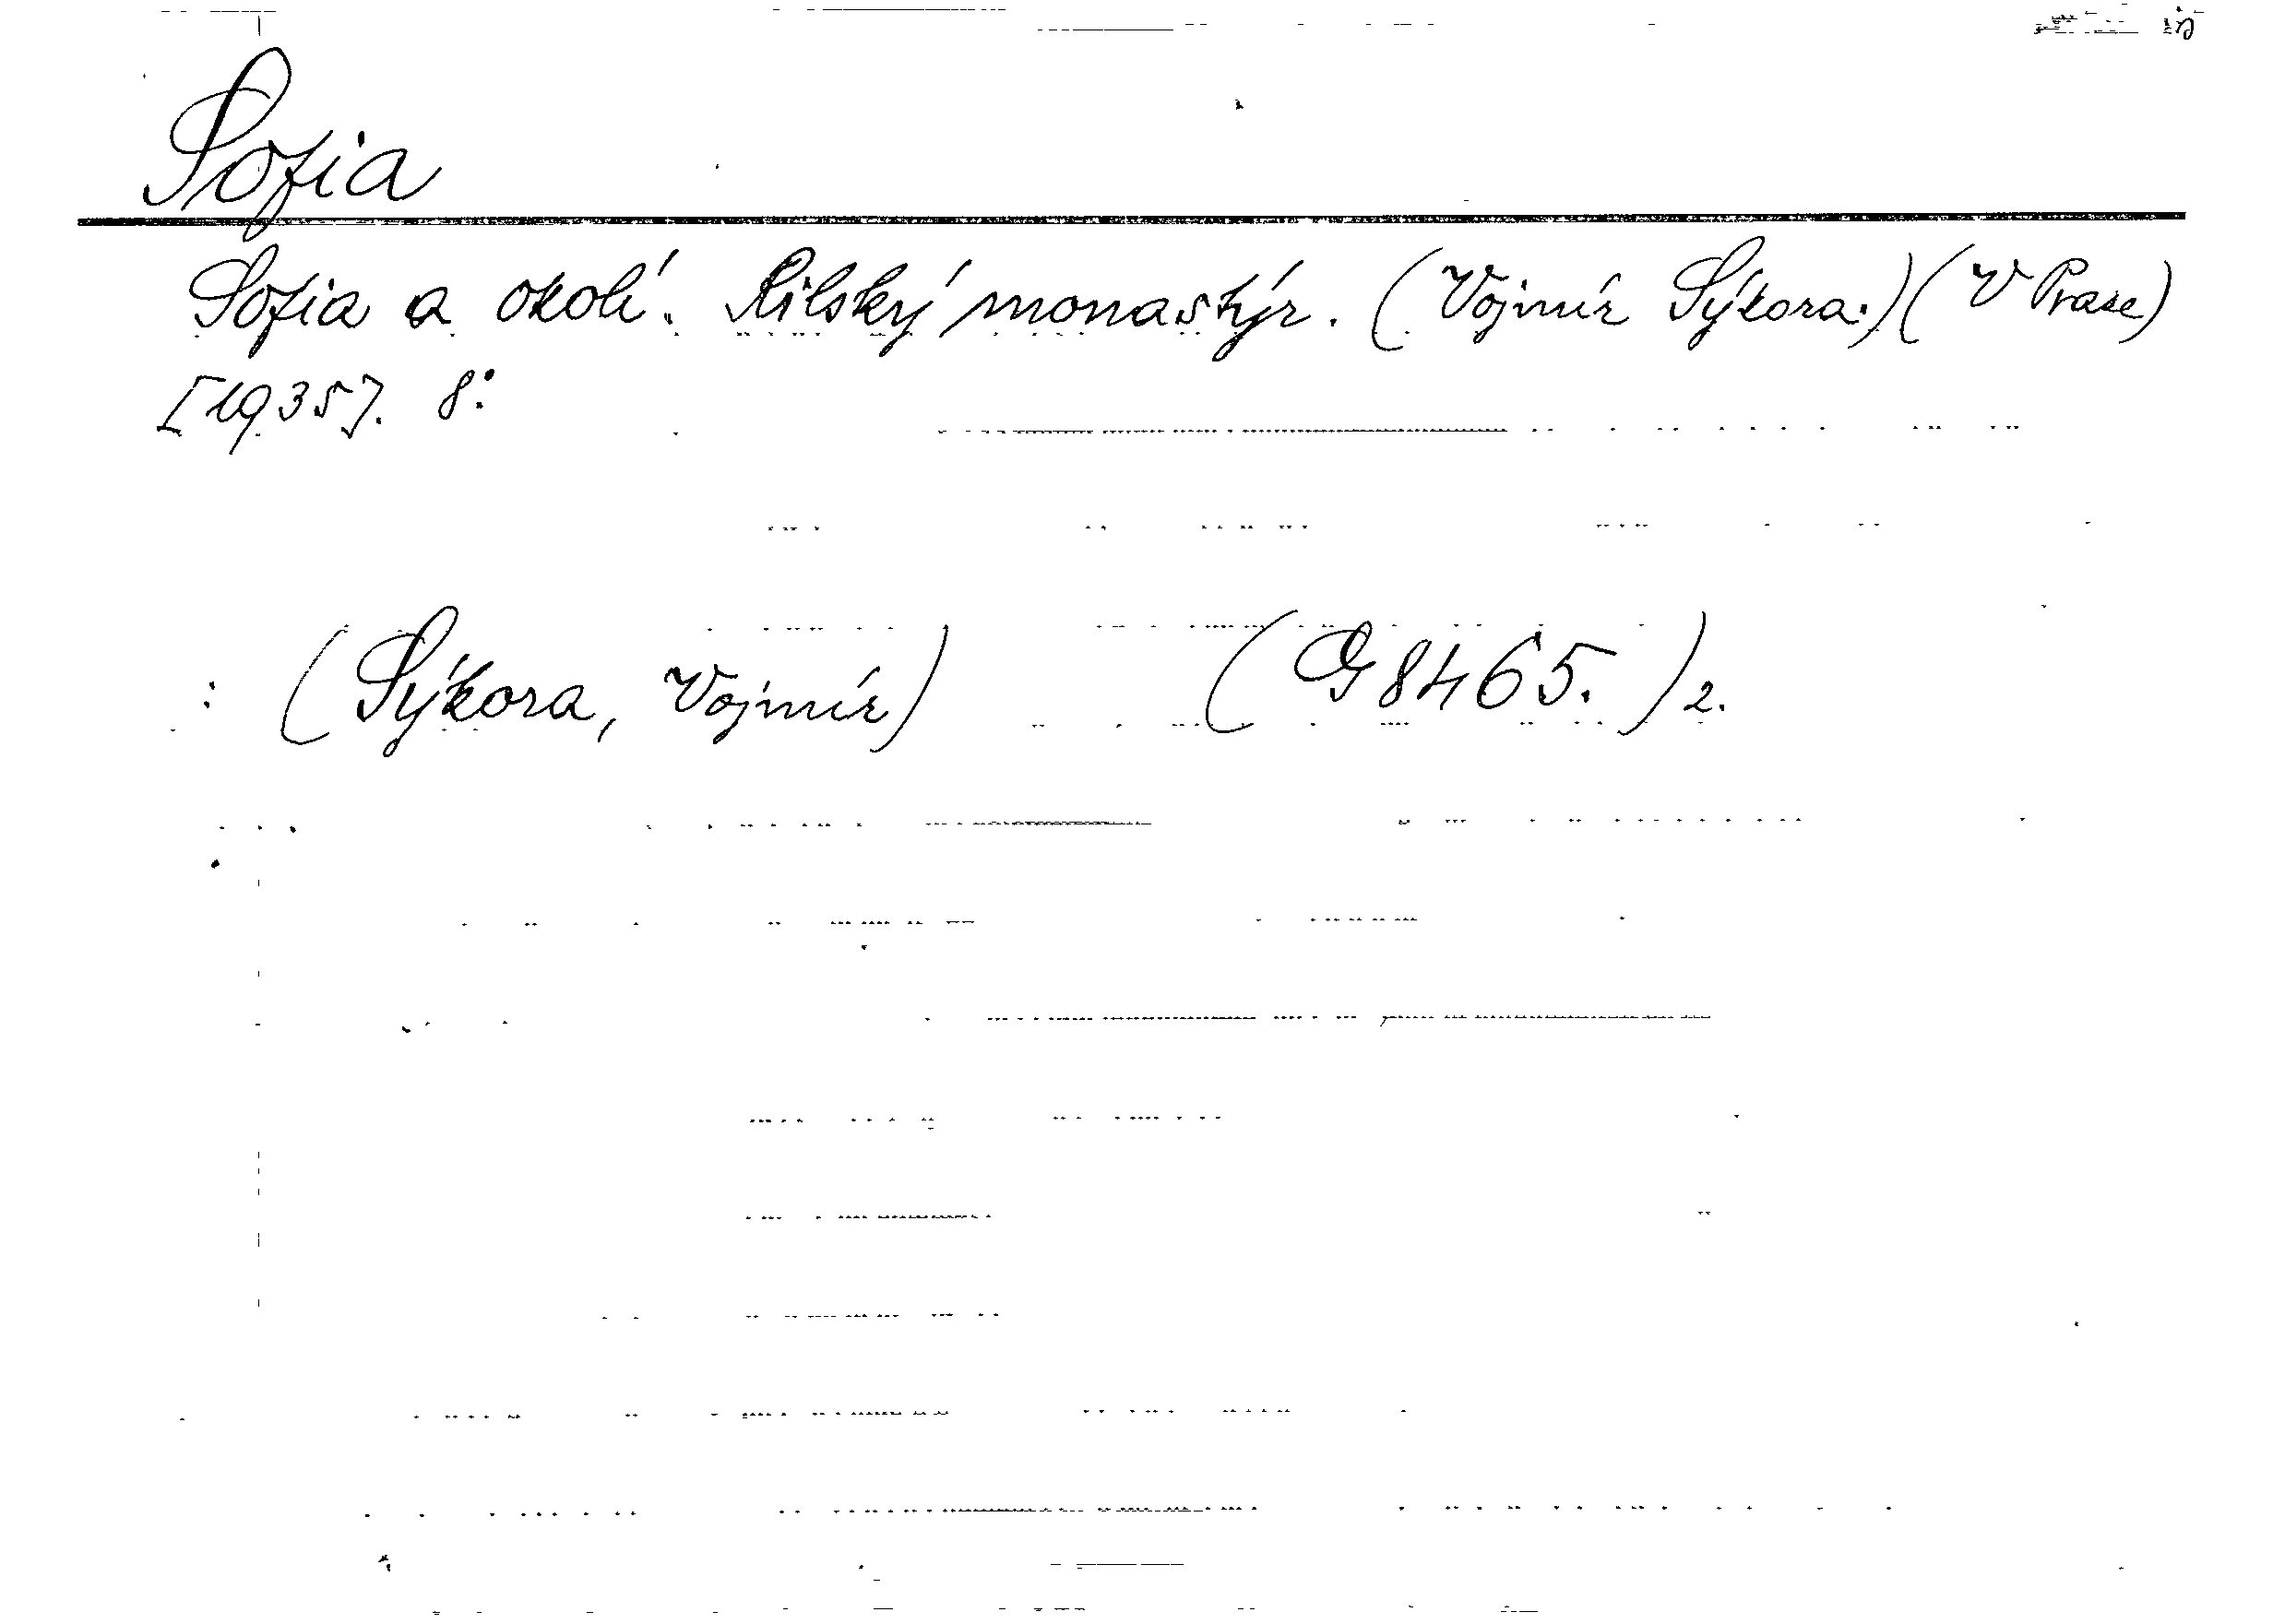 Sofia
Sofia a okolí. Rilský monastýr. (Vojmír Sýkora.) (V Praze)
[1935]. 8°.
: (Sýkora, Vojmír) (G 8465.) 2.